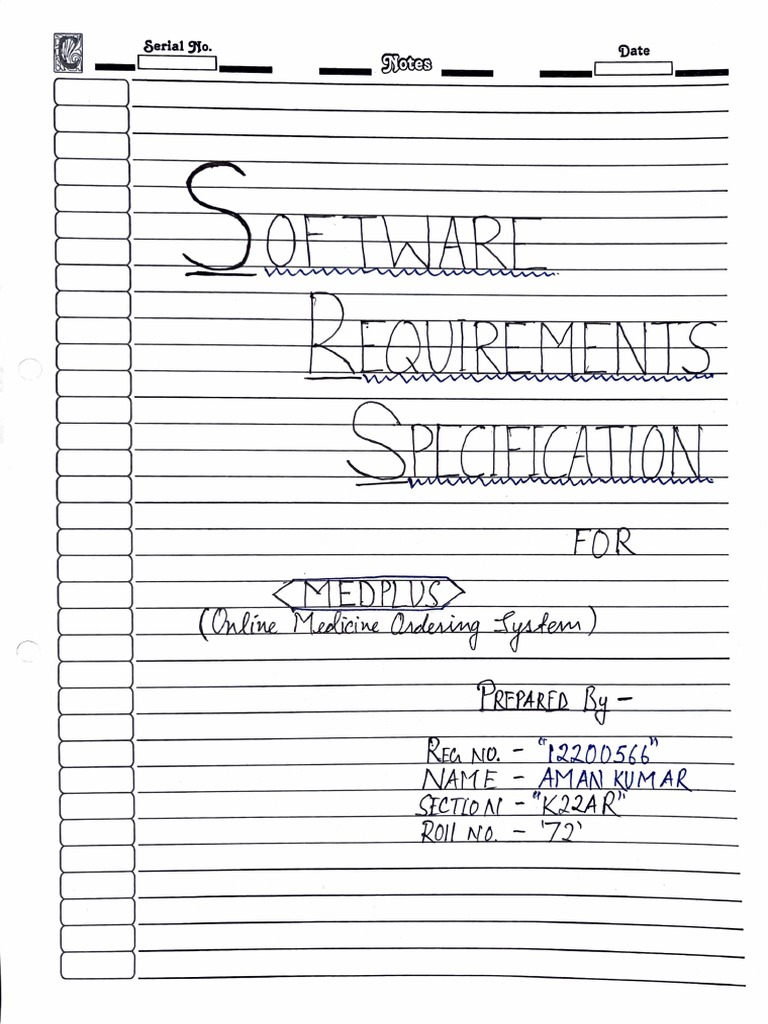 Serial No.
Notes
Date
SOFTWARE
REQUIREMENTS
SPECIFICATION
FOR
MEDPLUS
(Online Medicine Ordering System)
PREPARED By -
REG NO. - "12200566"
NAME - AMAN KUMAR
SECTION - "K22AR"
ROll NO. - '72'